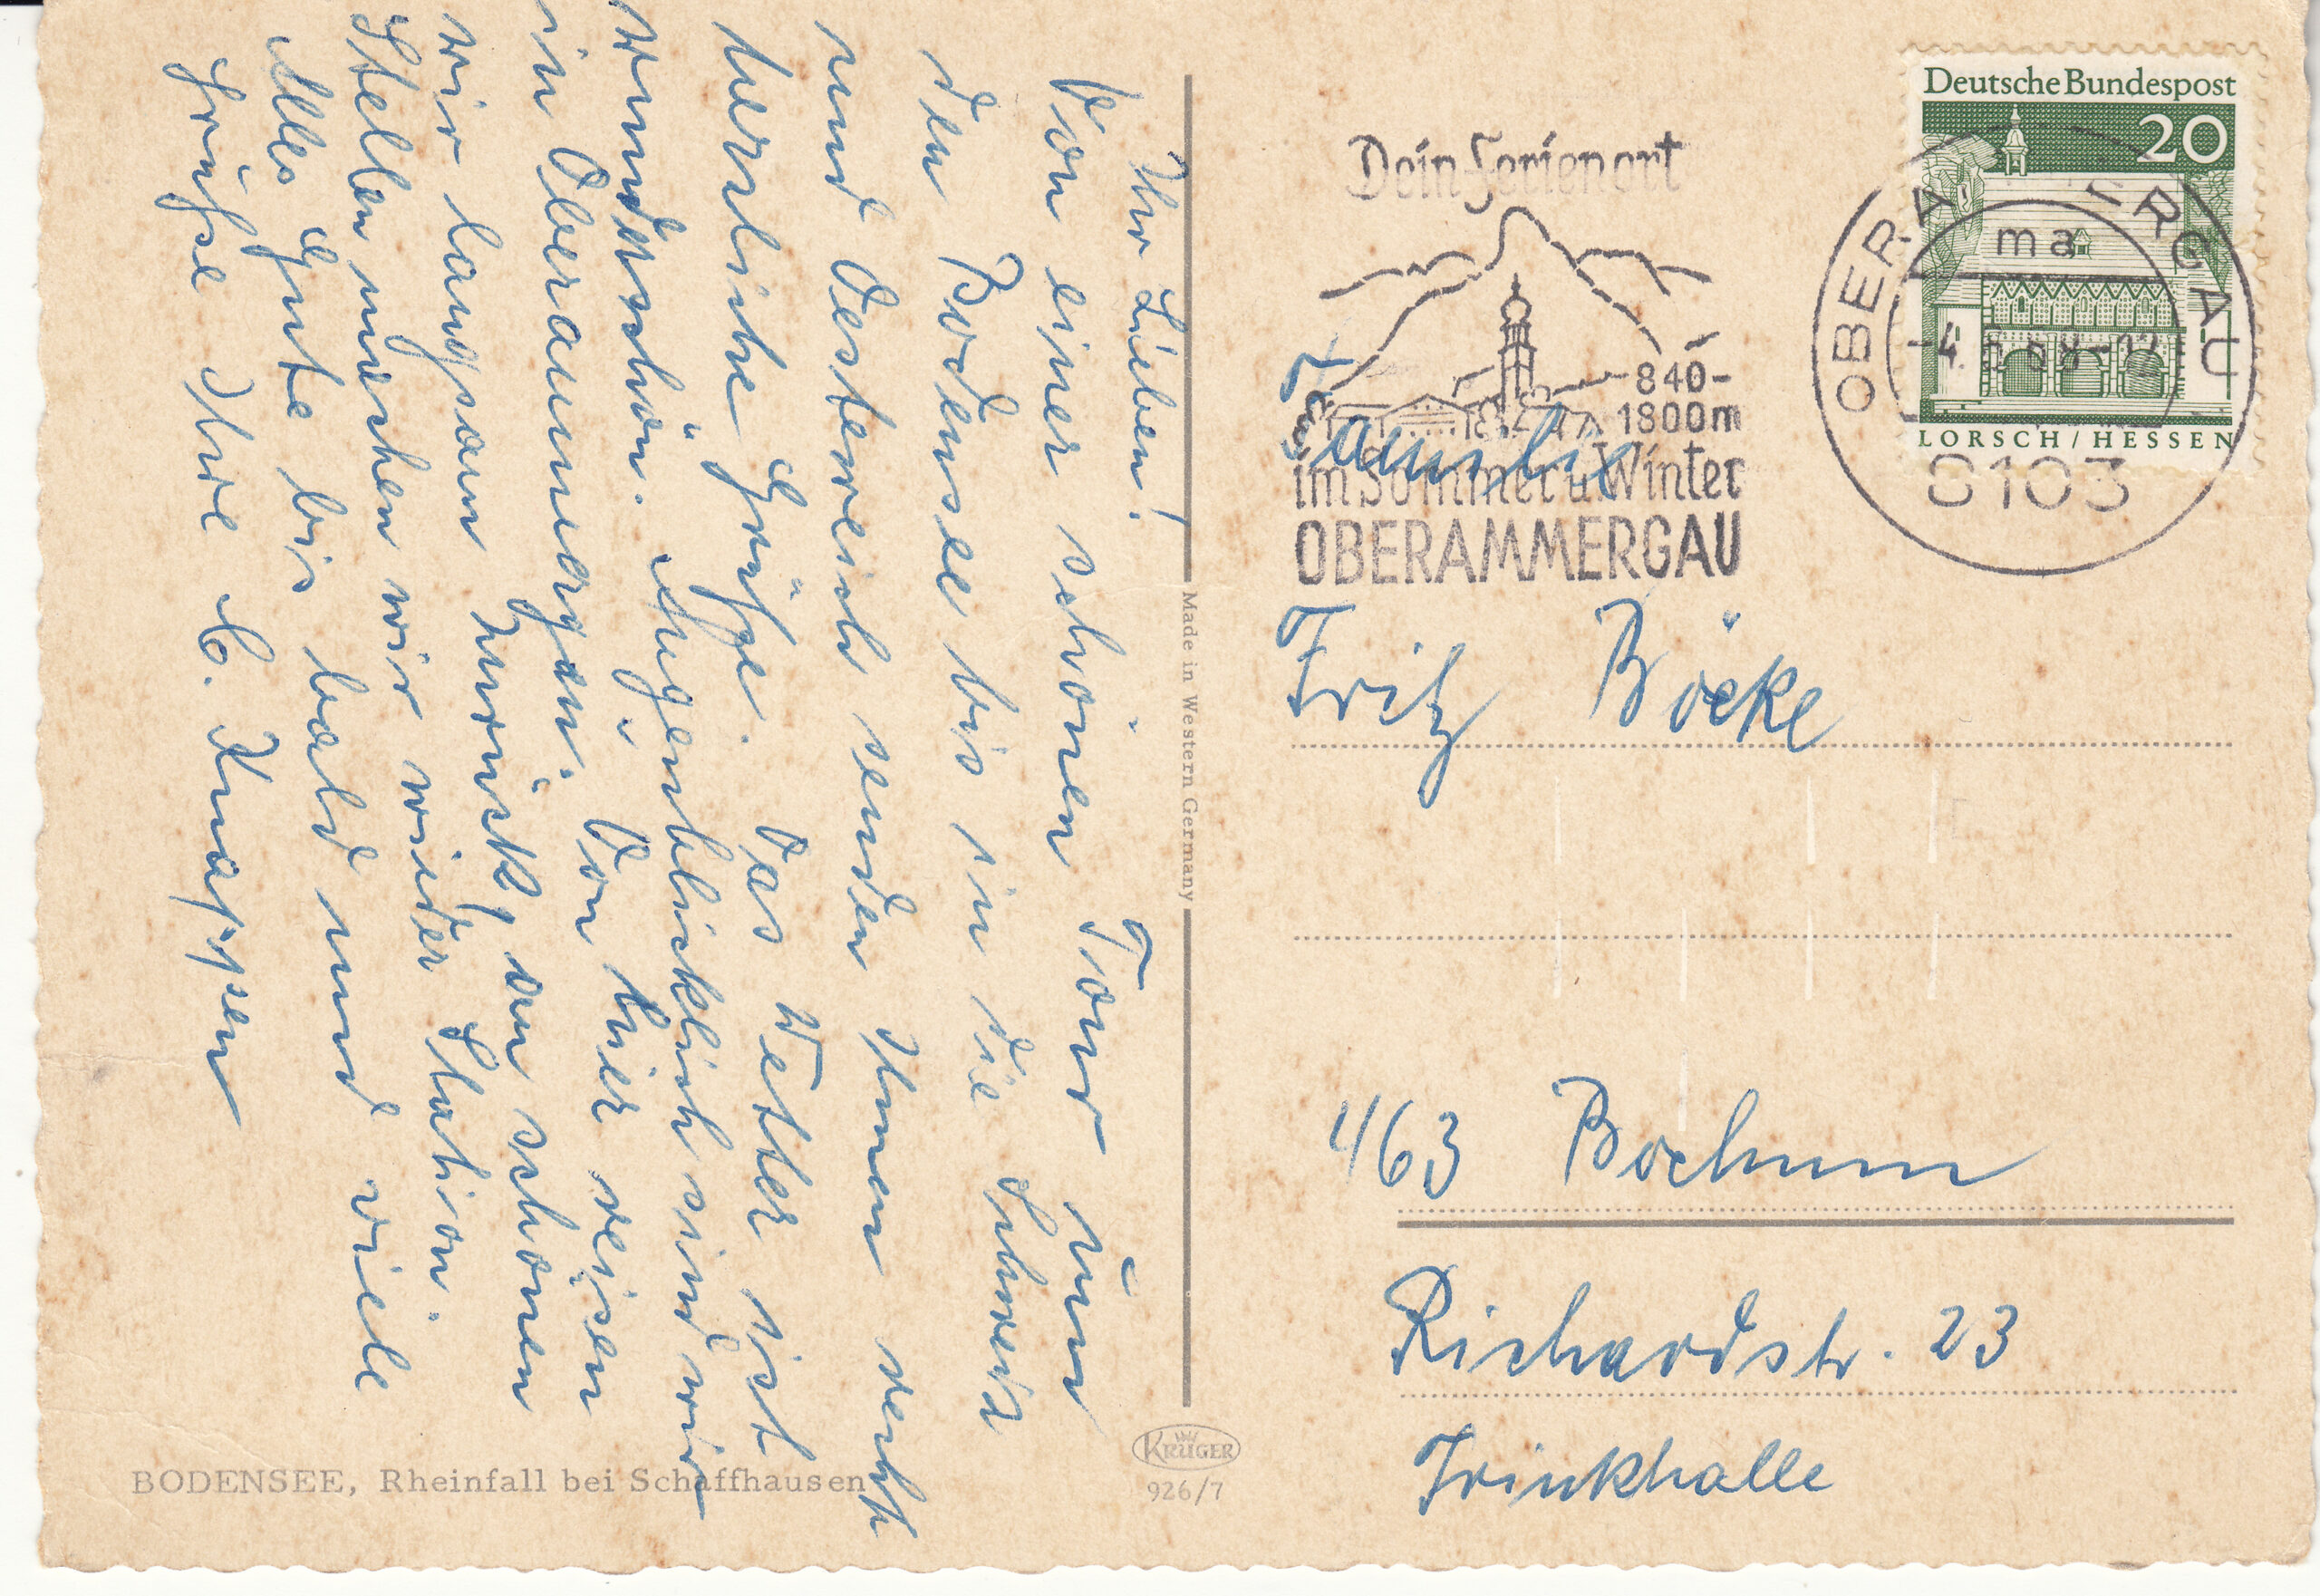 Ihr Lieben!
Von einer schönen Tour rum
den Bodensee bis in die Schweiz
und Oesterreich senden Ihnen recht
herzliche Grüße. Das Wetter ist
wunderschön. Augenblicklich sind wir
in Oberammergau. Von hier reisen
wir langsam zurück, an schönen
Stellen machen wir wieder Station.
Alles Gute bis bald und viele
Grüße Ihre
Made in Western Germany
BODENSEE, Rheinfall bei Schaffhausen
KRÜGER
926/7
Deutsche Bundespost
20
LORSCH / HESSEN
ma
8103
Dein Ferienort
840-
1800m
im Sommer u. Winter
OBERAMMERGAU
Familie
Fritz Böcke
463 Bochum
Richardstr. 23
Trinkhalle